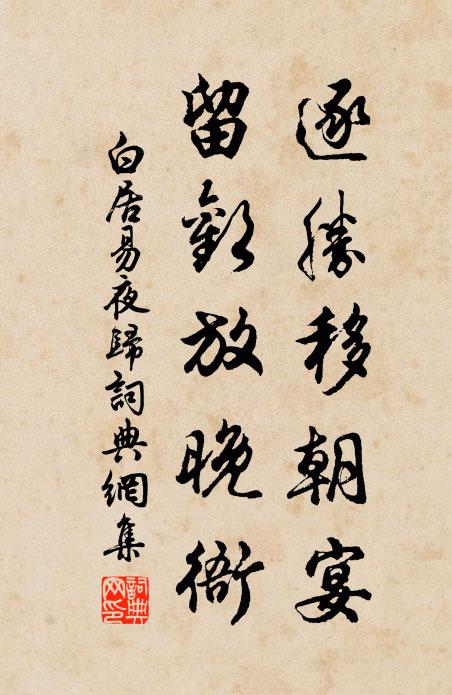 逐勝移朝宴
留歡放晚衙
白居易夜歸詞典網集
詞典
网印